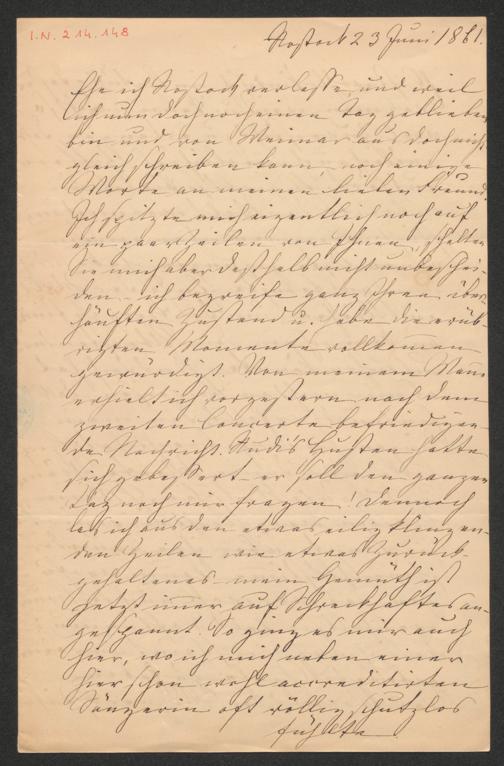 I.N. 214.148
Rostock 23 Juni 1861.
Ehe ich Rostock verlasse, und weil
ich nun doch noch einen Tag geblieben
bin und von Weimar aus doch nicht
gleich schreiben kann, noch einige
Worte an meinen lieben Freund.
Ich spitzte mich eigentlich noch auf
ein paar Zeilen von Ihnen, schelten
Sie mich aber deßhalb nicht unbeschei-
den – ich begreife ganz Ihren über-
häuften Zustand u. habe die erüb-
rigten Momente vollkommen
gewürdigt. Von meinem Mann
erhielt ich vorgestern nach dem
zweiten Concerte befriedigen-
de Nachricht. Rudis Husten hatte
sich gebessert – er soll den ganzen
Tag nach mir fragen! Dennoch
las ich aus den etwas eilig klingen-
den Zeilen wie etwas Zurück-
gehaltenes – mein Gemüth ist
jetzt immer auf Schreckhaftes an-
gespannt. So ging es mir auch
hier, wo ich mich neben einer
hier schon wohl accreditirten
Sängerin oft völlig schutzlos
fühlte.